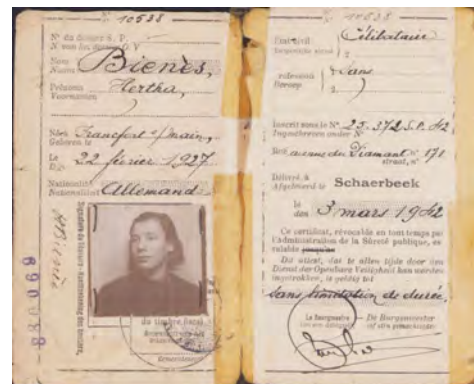 N° 10538
N° du dossier S. P.
N. van het dossier O. V.
Nom
Naam
Bienès,
Prénoms
Voornamen
Hertha,
Née à
Geboren te
Francfort s/main,
Le
Den
22 février 1927
Nationalité
Nationaliteit
Allemand
Signature du titulaire
H Bienès
690088
du timbre
N° 10538
Etat civil
Burgerlijke stand
1. Célibataire
2.
Profession
Beroep
1. Sans
2.
Inscrit sous le N° 25.372 S.P. 42
Ingeschreven onder N°
Rue avenue du Diamant, n° 171
straat, n°
Délivré à
Afgeleverd te
Schaerbeek
le
den
3 mars 1942
Ce certificat, révocable en tout temps par
l'Administration de la Sûreté publique, est
valable jusqu'au
Dit attest, dat te allen tijde door den
Dienst der Openbare Veiligheid kan worden
ingetrokken, is geldig tot
Sans limitation de durée.
Le Bourgmestre
De Burgemeester